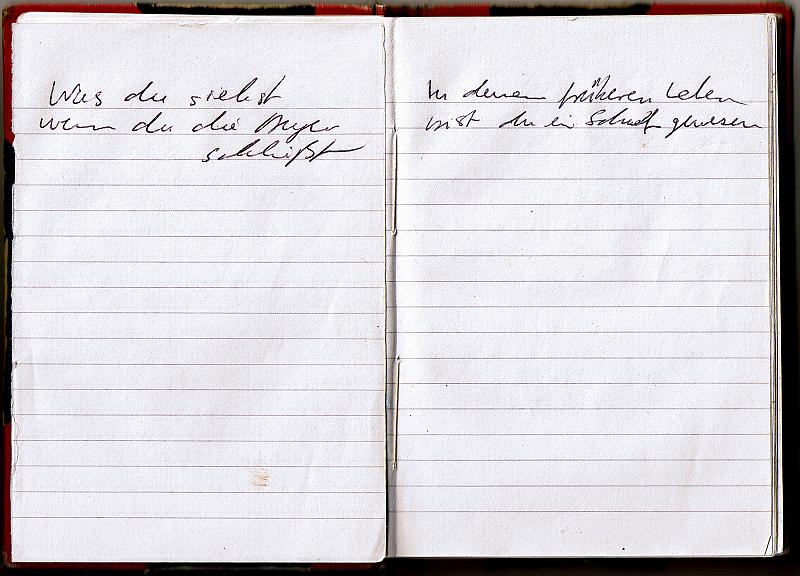 Was du siehst
wenn du die Augen
schließt
In deinem früheren Leben
bist du ein Schaf gewesen